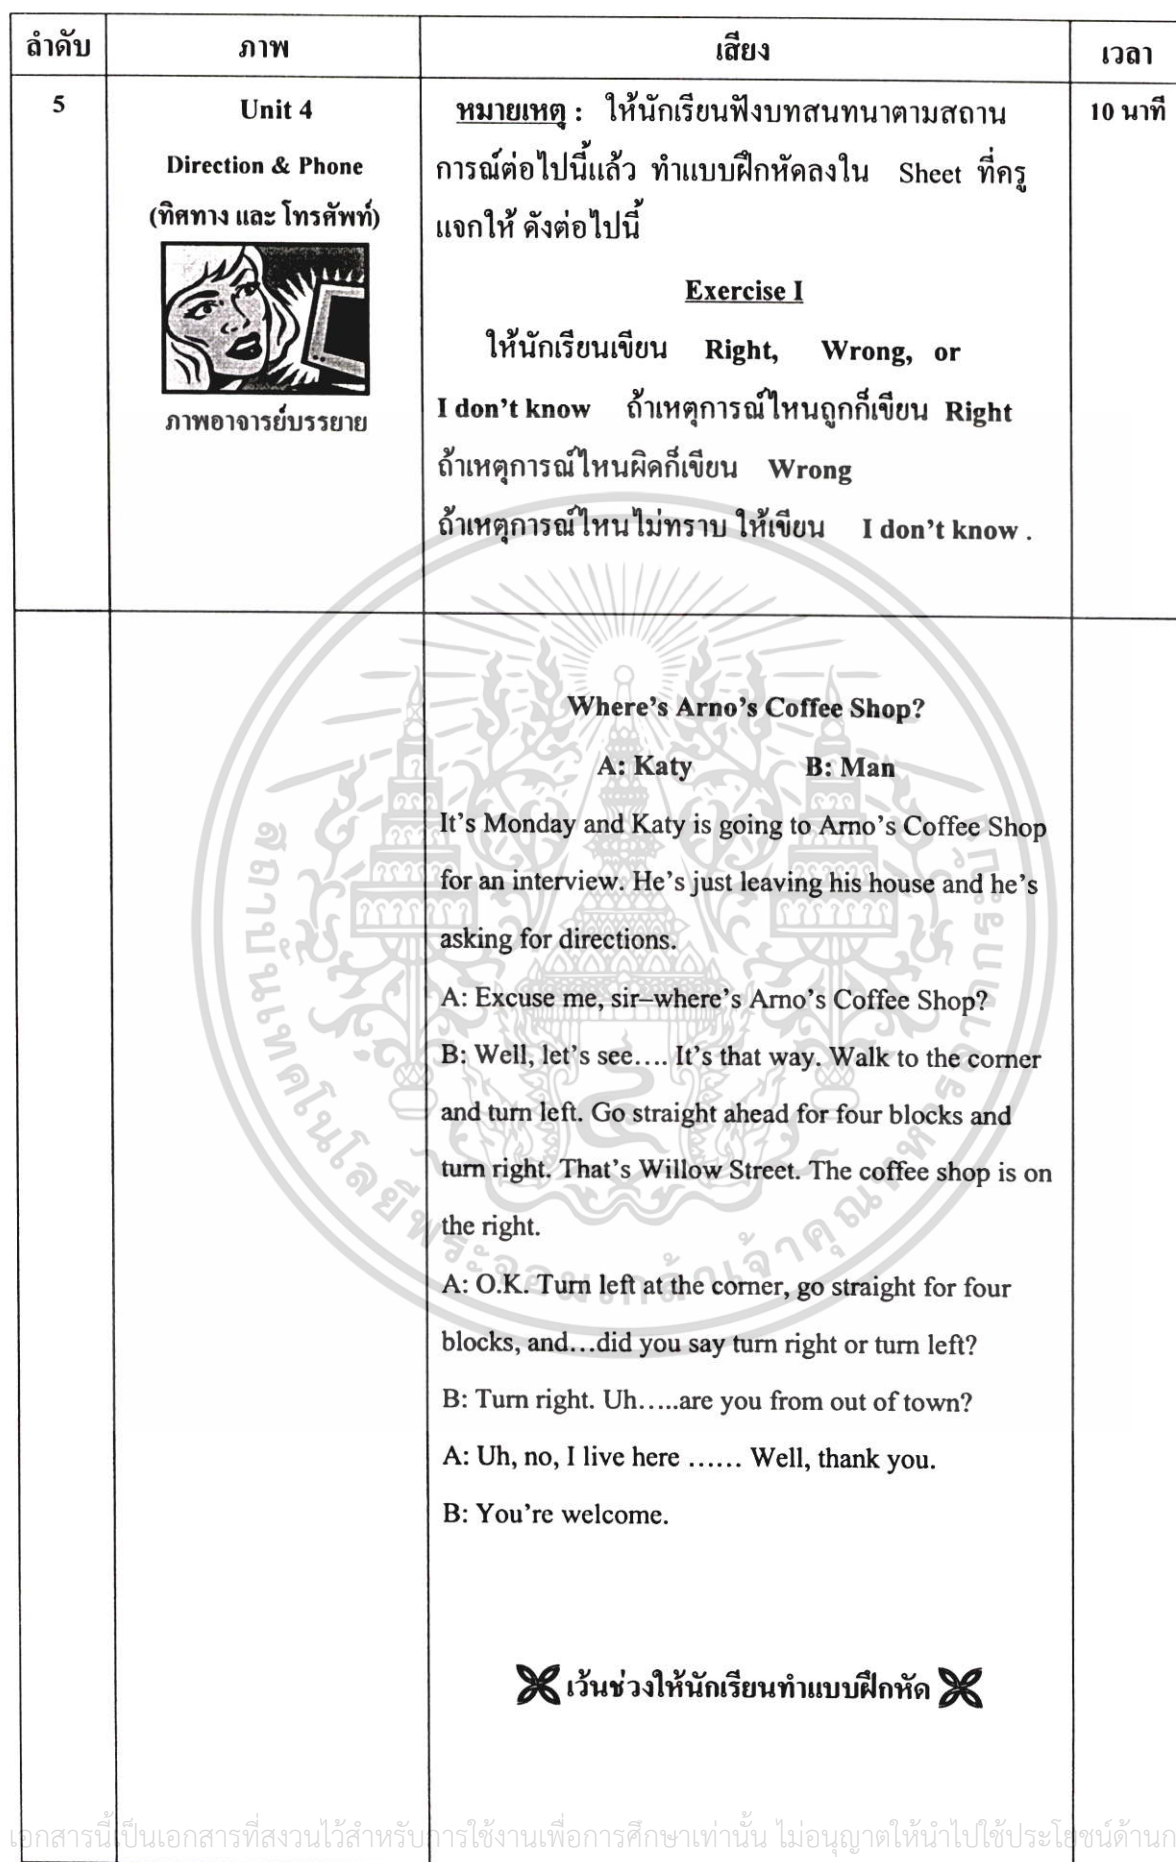 ลำดับ ภาพ เสียง เวลา
5 Unit 4 หมายเหตุ : ให้นักเรียนฟังบทสนทนาตามสถาน 10 นาที
Direction & Phone การณ์ต่อไปนี้แล้ว ทำแบบฝึกหัดลงใน Sheet ที่ครู
(ทิศทาง และ โทรศัพท์) แจกให้ ดังต่อไปนี้
Exercise I
ให้นักเรียนเขียน Right, Wrong, or
I don't know ถ้าเหตุการณ์ไหนถูกก็เขียน Right
ภาพอาจารย์บรรยาย
ถ้าเหตุการณ์ไหนผิดก็เขียน Wrong
ถ้าเหตุการณ์ไหนไม่ทราบ ให้เขียน I don't know .
Where's Arno's Coffee Shop?
A: Katy B: Man
It's Monday and Katy is going to Arno's Coffee Shop
for an interview. He's just leaving his house and he's
asking for directions.
A: Excuse me, sir–where's Arno's Coffee Shop?
B: Well, let's see…. It's that way. Walk to the corner
and turn left. Go straight ahead for four blocks and
turn right. That's Willow Street. The coffee shop is on
the right.
A: O.K. Turn left at the corner, go straight for four
blocks, and…did you say turn right or turn left?
B: Turn right. Uh…..are you from out of town?
A: Uh, no, I live here …… Well, thank you.
B: You're welcome.
เว้นช่วงให้นักเรียนทำแบบฝึกหัด
สถาบันเทคโนโลยีพระจอมเกล้าเจ้าคุณทหารลาดกระบัง
เอกสารนี้เป็นเอกสารที่สงวนไว้สำหรับการใช้งานเพื่อการศึกษาเท่านั้น ไม่อนุญาตให้นำไปใช้ประโยชน์ด้านก